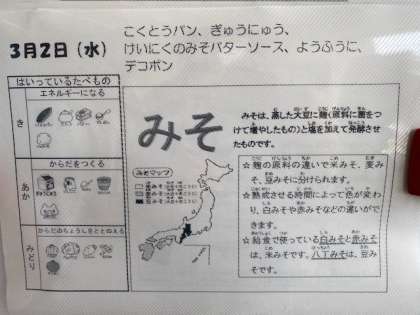 3月2日（水）
こくとうパン、ぎゅうにゅう、
けいにくのみそバターソース、ようふうに、
デコポン
はいっているたべもの
エネルギーになる
き
からだをつくる
あか
からだのちょうしをととのえる
みどり
みそ
みそマップ
みそは、蒸した大豆に麹（原料に菌をつ
けて増やしたもの）と塩を加えて発酵させ
たものです。
☆麹の原料の違いで米みそ、麦み
そ、豆みそに分けられます。
☆熟成させる時間によって色が変わ
り、白みそや赤みそなどの違いがで
きます。
☆給食で使っている白みそと赤みそ
は、米みそです。八丁みそは、豆み
そです。